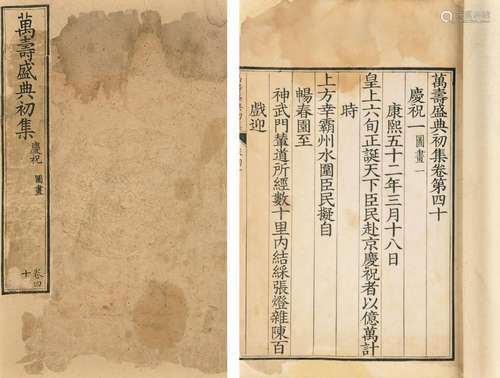 萬壽盛典初集
慶祝
圖畫
卷四
十
萬壽盛典初集卷第四十
慶祝一 圖畫一
康熙五十二年三月十八日
皇上六旬正誕天下臣民赴京慶祝者以億萬計
時
上方幸霸州水圍臣民擬自
暢春園至
神武門輦道所經數十里内結綵張燈雜陳百
戲迎